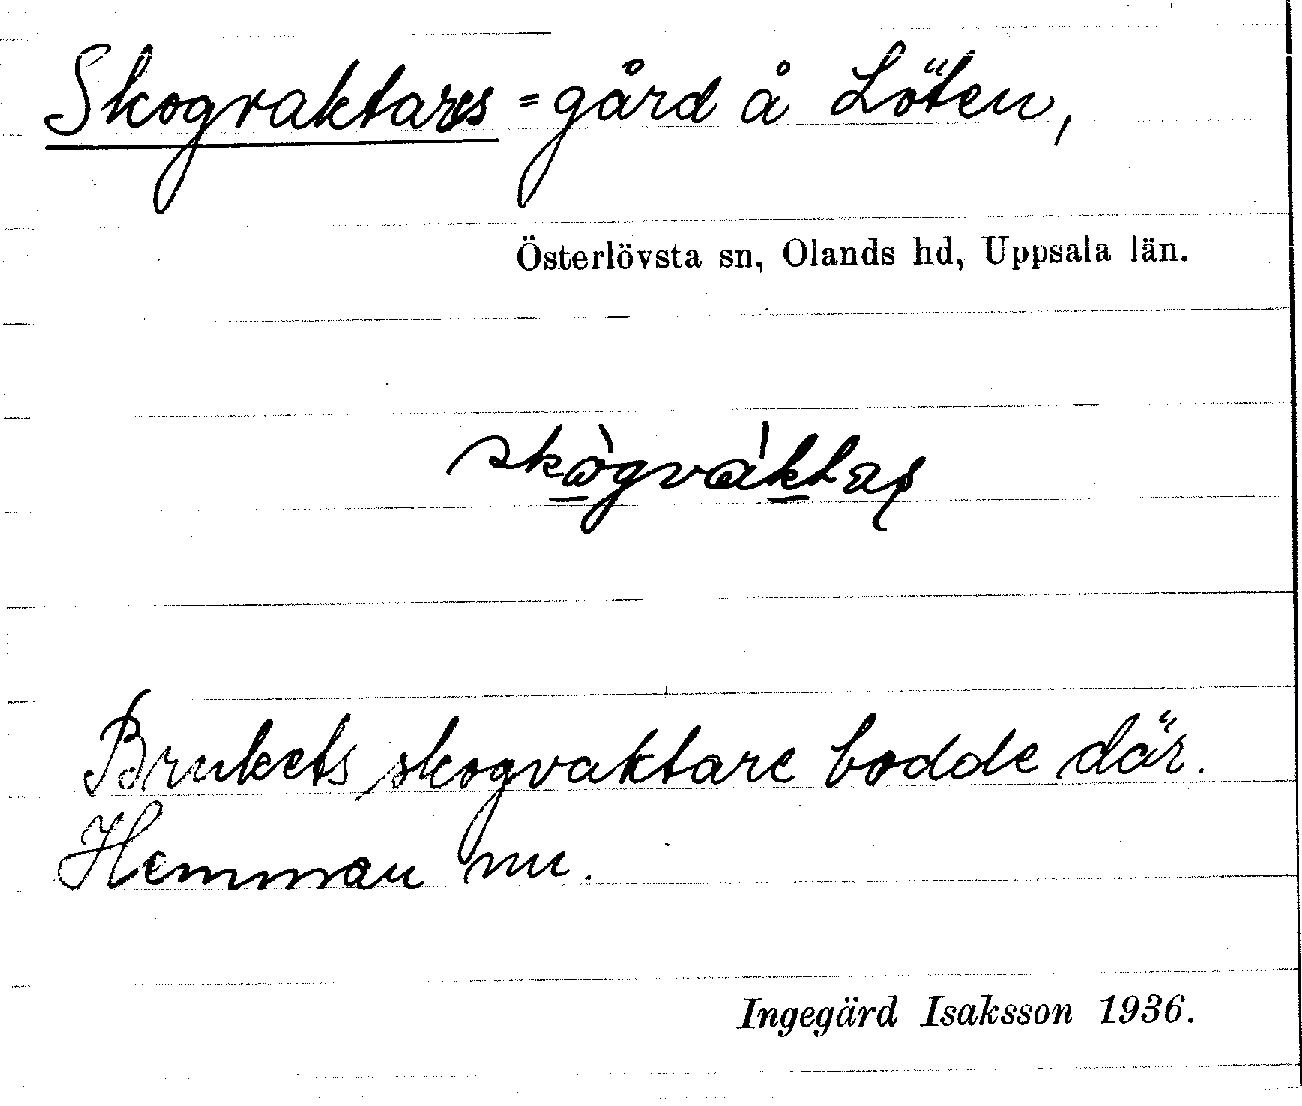 Skogvaktares = gård å Löten,
Österlövsta sn, Olands hd, Uppsala län.
skògváktas
Brukets skogvaktare bodde där.
Hemman nu.
Ingegärd Isaksson 1936.